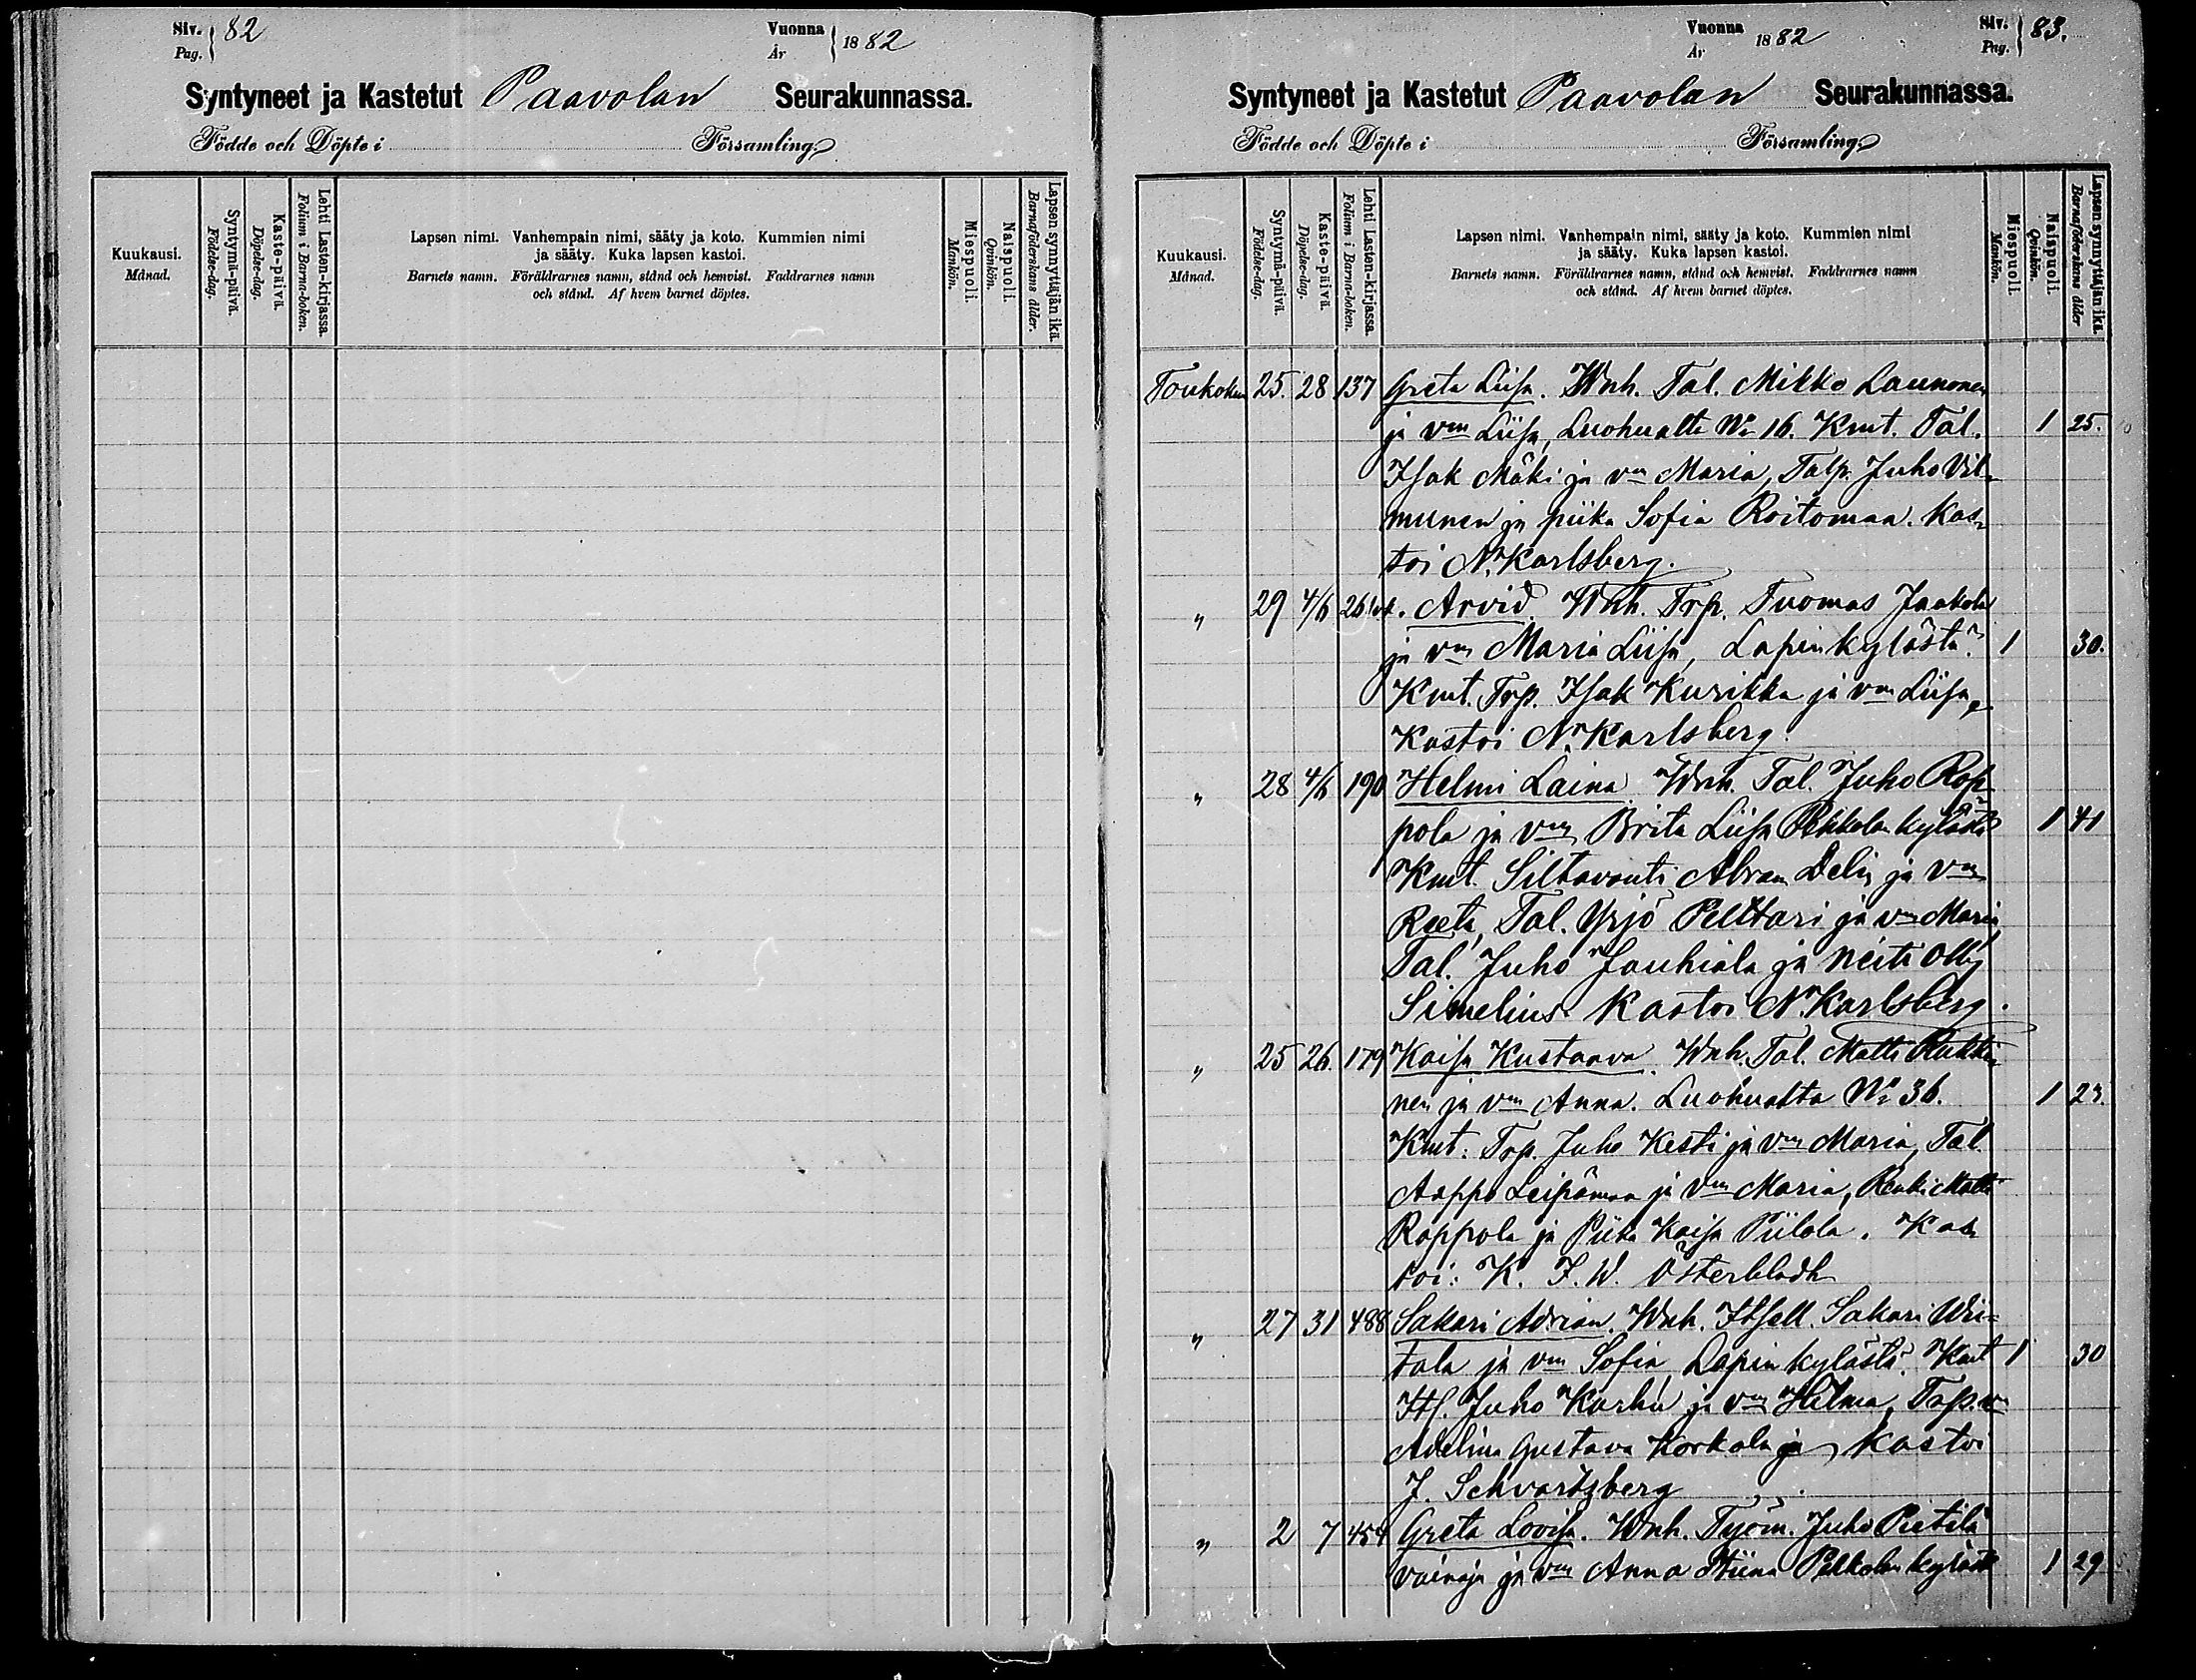 Siv. 82
Pag.
Vuonna 1882
År
Syntyneet ja Kastetut Paavolan Seurakunnassa.
Födde och Döpte i Församling.
Kuukausi.
Månad.
Syntymä-päivä.
Födelse-dag.
Kaste-päivä.
Döpelse-dag.
Lehti Lasten-kirjassa.
Folium i Barna-boken.
Lapsen nimi. Vanhempain nimi, sääty ja koto. Kummien nimi
ja sääty. Kuka lapsen kastoi.
Barnets namn. Föräldrarnes namn, stånd och hemvist. Faddrarnes namn
och stånd. Af hvem barnet döptes.
Miespuoli.
Mankön.
Naispuoli.
Qvinkön.
Lapsen synnyttäjän ikä.
Barnaföderskans ålder.
Vuonna 1882
År
Siv. 83.
Pag.
Syntyneet ja Kastetut Paavolan Seurakunnassa.
Födde och Döpte i Församling.
Kuukausi.
Månad.
Syntymä-päivä.
Födelse-dag.
Kaste-päivä.
Döpelse-dag.
Lehti Lasten-kirjassa.
Folium i Barna-boken.
Lapsen nimi. Vanhempain nimi, sääty ja koto. Kummien nimi
ja sääty. Kuka lapsen kastoi.
Barnets namn. Föräldrarnes namn, stånd och hemvist. Faddrarnes namn
och stånd. Af hvem barnet döptes.
Miespuoli.
Mankön.
Naispuoli.
Qvinkön.
Lapsen synnyttäjän ikä.
Barnaföderskans ålder
Toukokuu 25. 28 137 Greta Liisa. Wnh. Tal. Mikko Launonen
ja vm Liisa, Luohualta No 16. Kmt. Tal. 1 25.
Isak Mäki ja vm Maria, Talp. Juho Vil-
munen ja piika Sofia Roitomaa. Kas-
toi N. Karlsberg.
" 29 4/6 Arvid. Wnh. Trp. Tuomas Jaakola
ja vm Maria Liisa, Lapinkylästä. 1 30.
Kmt. Trp. Isak Kurikka ja vm Liisa,
Kastoi N. Karlsberg.
" 28 4/6 190 Helmi Laina. Wnh. Tal. Juho Rop-
pola ja vm Brita Liisa Pekkolan kylästä 1 41
Kmt. Siltavouti Abram Delin ja vm
Reeta, Tal. Yrjö Pelttari ja vm Maria,
Tal. Juho Jauhiala ja neiti Olly
Simelius. Kastoi N. Karlsberg.
" 25 26. 179 Kaisa Kustaava. Wnh. Tal. Matti
nen ja vm Anna. Luohualta No 36. 1 23.
Kmt: Trp. Juho Kesti ja vm Maria, Tal.
Aappo Leipämaa ja vm Maria, Renki Matti
Roppola ja Piika Kaisa Piilola. Kas-
toi: K. F. W. Österbladh
" 27 31 488 Sakari Adrian. Wnh. Itsell. Sakari Wii-
tala ja vm Sofia, Lapin kylästä. Kmt 1 30
Its. Juho Karhu ja vm Hilma, Trp. vm
Adelina Gustava Korkala ja Kastoi
J. Schvartzberg
" 2 7 454 Greta Lovisa. Wnh. Työm. Juho Pietilä
vainaja ja vm Anna Stiina Pekkolan kylästä 1 29